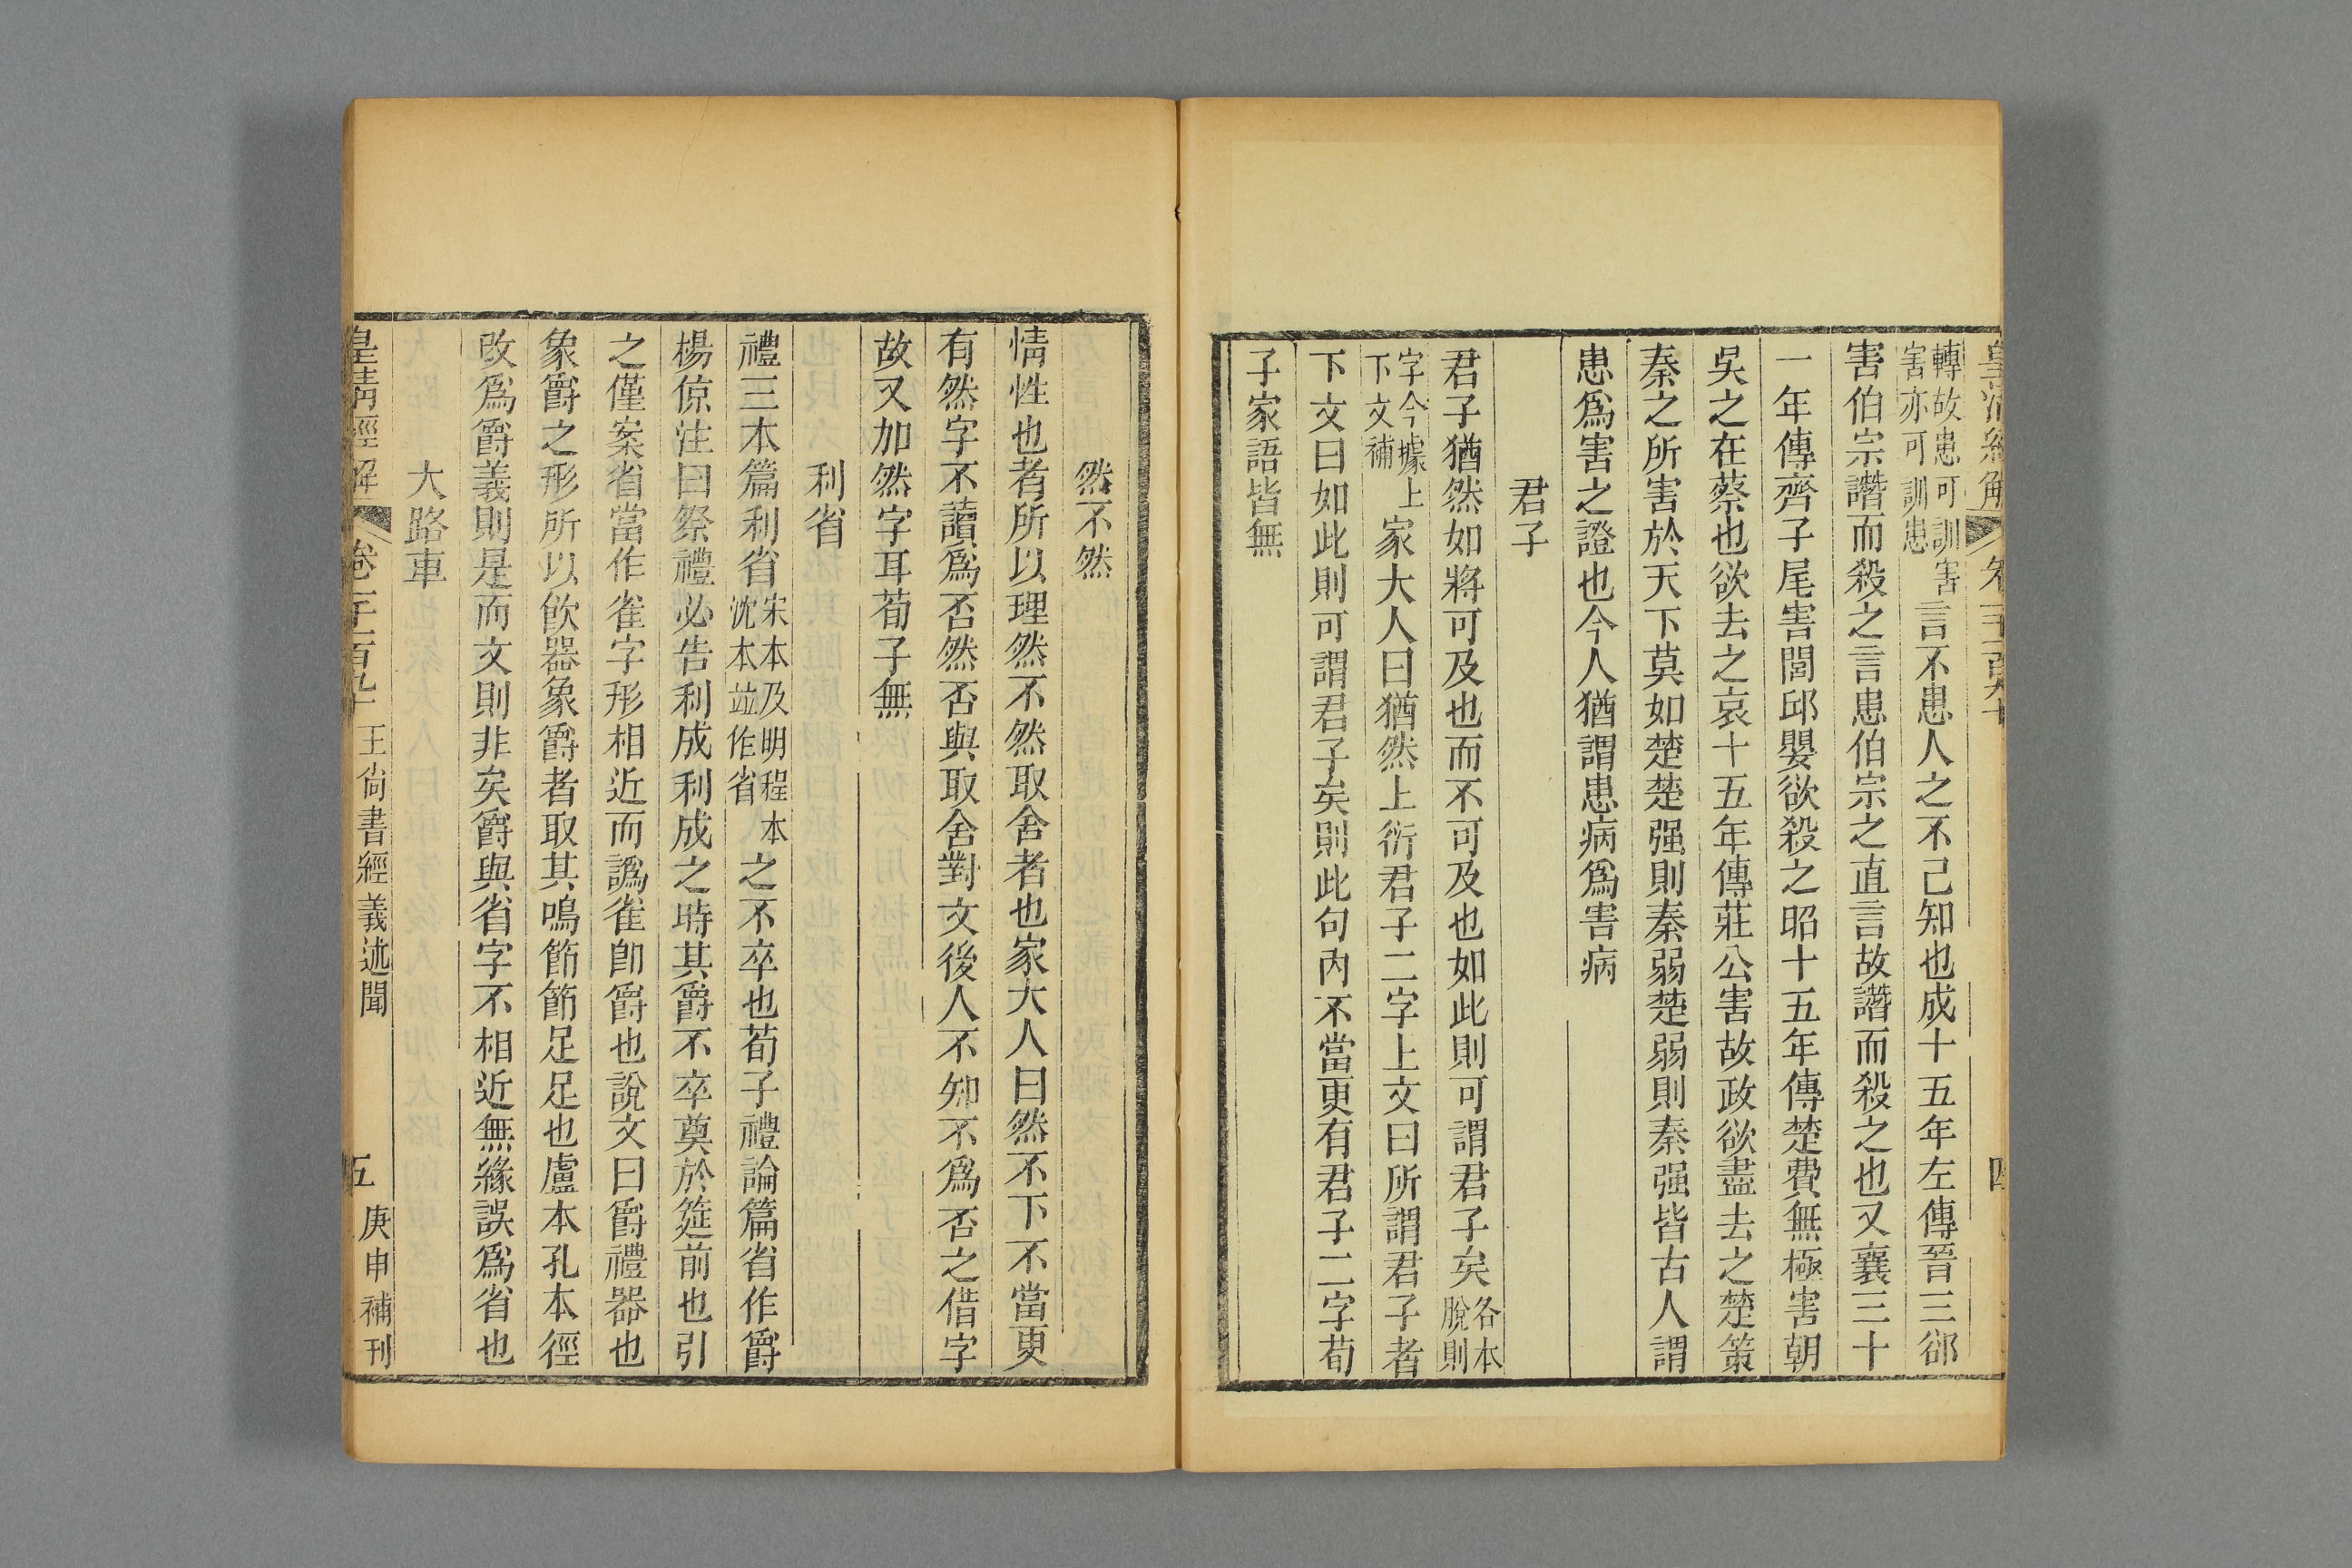 皇清經解
卷一千一百九十
四
轉故患可訓害
害亦可訓患
言不患人之不己知也成十五年左傳晉三郤
害伯宗譖而殺之言患伯宗之直言故譖而殺之也又襄三十
一年傳齊子尾害閭邱嬰欲殺之昭十五年傳楚費無極害朝
吳之在蔡也欲去之哀十五年傳莊公害故政欲盡去之楚策
秦之所害於天下莫如楚楚强則秦弱楚弱則秦强皆古人謂
患爲害之證也今人猶謂患病爲害病
君子
君子猶然如將可及也而不可及也如此則可謂君子矣各本
脫則
字今據上
下文補
家大人曰猶然上衍君子二字上文曰所謂君子者
下文曰如此則可謂君子矣則此句內不當更有君子二字荀
子家語皆無
然不然
情性也者所以理然不然取舍者也家大人曰然不下不當更
有然字不讀爲否然否與取舍對文後人不知不爲否之借字
故又加然字耳荀子無
利省
禮三本篇利省宋本及明程本
沈本竝作省
之不卒也荀子禮論篇省作爵
楊倞注曰祭禮必告利成利成之時其爵不卒奠於筵前也引
之僅案省當作雀字形相近而譌雀卽爵也說文曰爵禮器也
象爵之形所以飮器象爵者取其鳴節節足足也盧本孔本徑
改爲爵義則是而文則非矣爵與省字不相近無緣誤爲省也
大路車
皇清經解
卷一千一百九十
王尙書經義述聞
五
庚申補刊